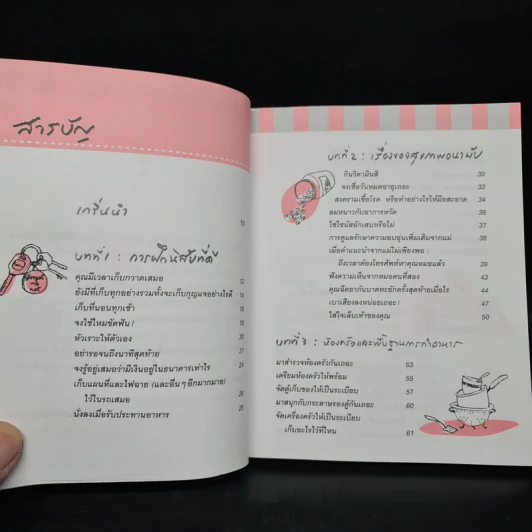 สารบัญ
เกริ่นนำ 10
บทที่ 1 : การฝึกนิสัยที่ดี
คุณมีเวลาเก็บกวาดเสมอ 12
ยังมีที่เก็บทุกอย่างรวมทั้งจะเก็บกุญแจอย่างไรดี 14
เก็บที่นอนทุกเช้า
จงใช้ไหมขัดฟัน !
หัวเราะให้ตัวเอง 20
อย่ารอจนถึงนาทีสุดท้าย 21
จงรู้อยู่เสมอว่ามีเงินอยู่ในธนาคารเท่าไร 24
เก็บแผนที่และไฟฉาย (และอื่นๆ อีกมากมาย)
ไว้ในรถเสมอ 26
นั่งลงเมื่อรับประทานอาหาร 28
บทที่ 2 : เรื่องของสุขภาพอนามัย
กินวิตามินสิ 30
จงเชื่อวันหมดอายุเถอะ 32
สงครามเชื้อโรค หรือทำอย่างไรให้มือสะอาด 34
ลมหนาวกับอาการหวัด 36
ใช่ไซนัสอักเสบหรือไม่ 37
การดูแลรักษาความอบอุ่นเพิ่มเติมจากแม่ 38
เมื่อคำแนะนำจากแม่ไม่เพียงพอ :
ถึงเวลาต้องโทรศัพท์หาคุณหมอแล้ว 39
ฟังความเห็นจากหมอคนที่สอง 43
คุณฉีดยากันบาดทะยักครั้งสุดท้ายเมื่อไร 44
เบาเสียงลงหน่อยเถอะ ! 47
ใส่ใจเล็บเท้าของคุณ 50
บทที่ 3 : ห้องครัวและพื้นฐานการทำอาหาร
มาสำรวจห้องครัวกันเถอะ 53
เตรียมห้องครัวให้พร้อม 55
จัดตู้เก็บของให้เป็นระเบียบ 57
มาสนุกกับกระดาษรองตู้กันเถอะ 60
จัดเครื่องครัวให้เป็นระเบียบ
เก็บอะไรไว้ที่ไหน 61